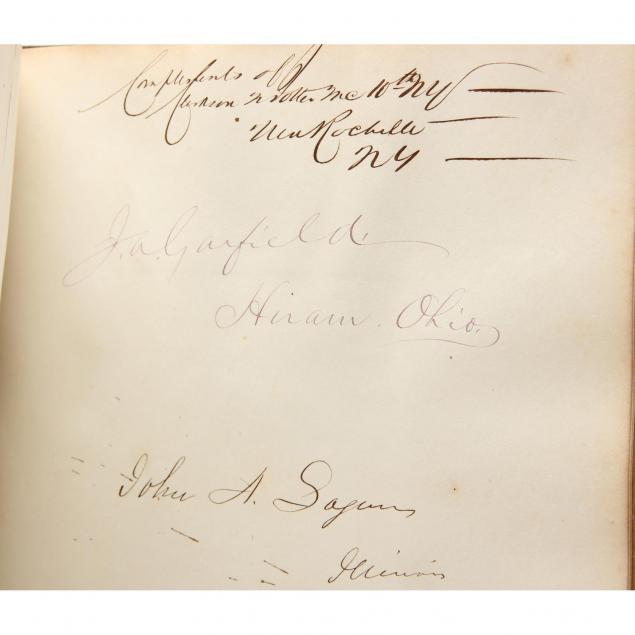 Compliments of
Clarkson N Potter MC 10th NY
New Rochelle
NY
J. A. Garfield
Hiram. Ohio.
John A. Logan
Illinois